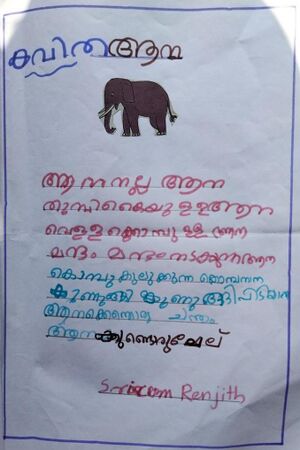 കവിത ആന
ആന നല്ല ആന
തുമ്പികൈയു ഉള്ള ആന
വെള്ള കൊമ്പു ഉള്ള ആന
മന്ദം മന്ദം നടക്കുന്ന ആന
കൊമ്പുകുലുക്കുന്ന കൊമ്പനാന
കുണുങ്ങി കുണുങ്ങി പിടിയാന
ആനക്കെന്തൊരു ചന്തം
ആന
Sriram Renjith